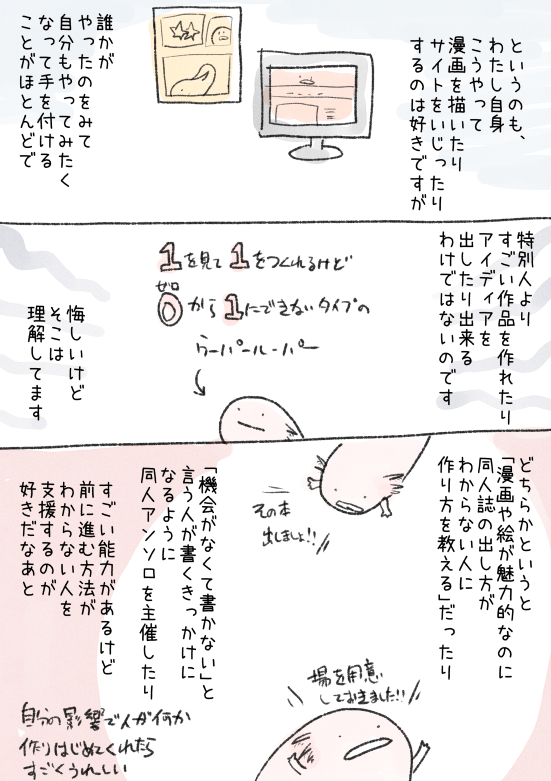 というのも、
わたし自身
こうやって
漫画を描いたり
サイトをいじったり
するのは好きですが
誰かが
やったのをみて
自分もやってみたく
なって手を付ける
ことがほとんどで
特別人より
すごい作品を作れたり
アイディアを
出したり出来る
わけではないのです
1を見て1をつくれるけど
ゼロ
0から1にできないタイプの
ウーパールーパー
悔しいけど
そこは
理解してます
どちらかというと
「漫画や絵が魅力的なのに
同人誌の出し方が
わからない人に
作り方を教える」だったり
その本
出しましょ!!
「機会がなくて書かない」と
言う人が書くきっかけに
なるように
同人アンソロを主催したり
場を用意
しておきました!!
すごい能力があるけど
前に進む方法が
わからない人を
支援するのが
好きだなあと
自分の影響で人が何か
作りはじめてくれたら
すごくうれしい